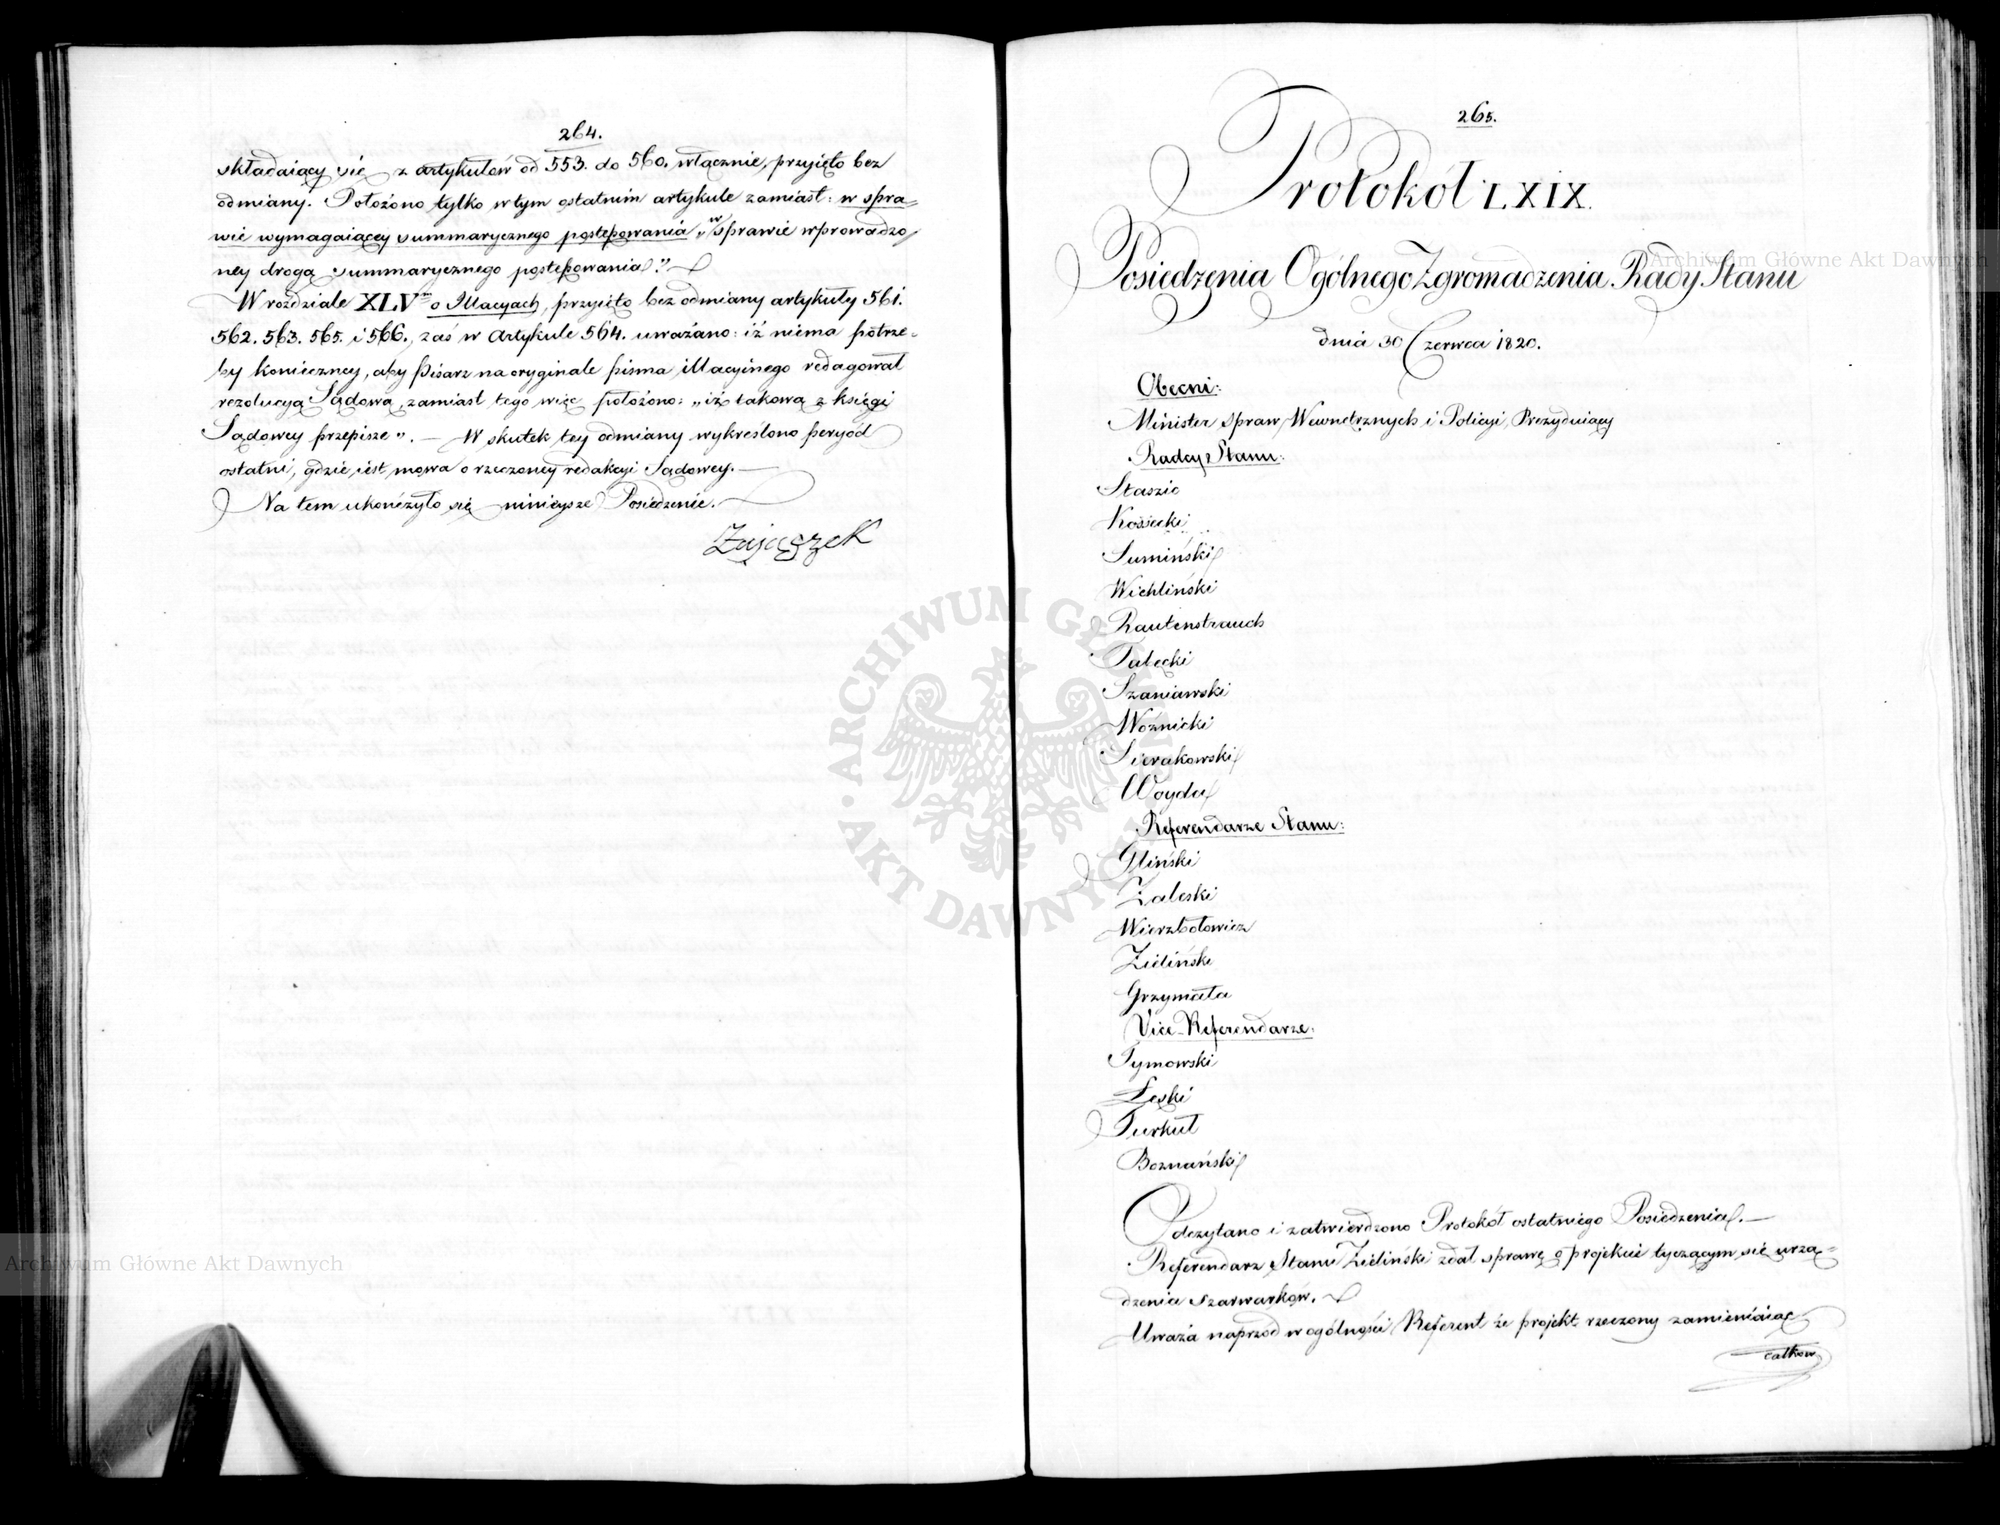 264.
składaiący się z artykułów od 553. do 560. włącznie, przyięto bez
odmiany. Położono tylko w tym ostatnim artykule zamiast: w spra-
wie wymagaiącey summarycznego postępowania „w sprawie wprowadzo
ney drogą summarycznego postępowania."
W rozdziale XLVm o Illacyach, przyięto bez odmiany artykuły 561.
562. 563. 565. i 566., zaś w Artykule 564. uważano: iż niema potrze-
by konieczney, aby Pisarz na oryginale pisma illacyinego redagował
rezolucyą Sądową, zamiast tego więc położono: „iż takową z księgi
Sądowey przepisze". — W skutek tey odmiany wykreślono peryod
ostatni, gdzie iest mowa o rzeczoney redakcyi Sądowey. —
Na tem ukończyło się ninieysze Posiedzenie.
Zajączek
265.
Protokół LXIX.
Posiedzenia Ogólnego Zgromadzenia Rady Stanu
dnia 30 Czerwca 1820.
Obecni:
Minister Spraw Wewnętrznych i Policyi, Prezyduiący
Radcy Stanu:
Staszic
Kossecki
Sumiński
Wichliński
Rautenstrauch
Szaniawski
Woźnicki
Sierakowski
Woyda
Referendarze Stanu:
Gliński
Zaleski
Wierzbołowicz
Zieliński
Grzymała
Vice-Referendarze:
Tymowski
Łęski
Turkuł
Boznański
Odczytano i zatwierdzono Protokół ostatniego Posiedzenia. —
Referendarz Stanu Zieliński zdał sprawę o projekcie tyczącym się urzą-
dzenia szarwarków.
Uważa naprzód w ogólności Referent że projekt rzeczony zamieniaiąc
całkow
Archiwum Główne Akt Dawnych
Archiwum Główne Akt Dawnych
ARCHIWUM GŁÓWNE · AKT DAWNYCH